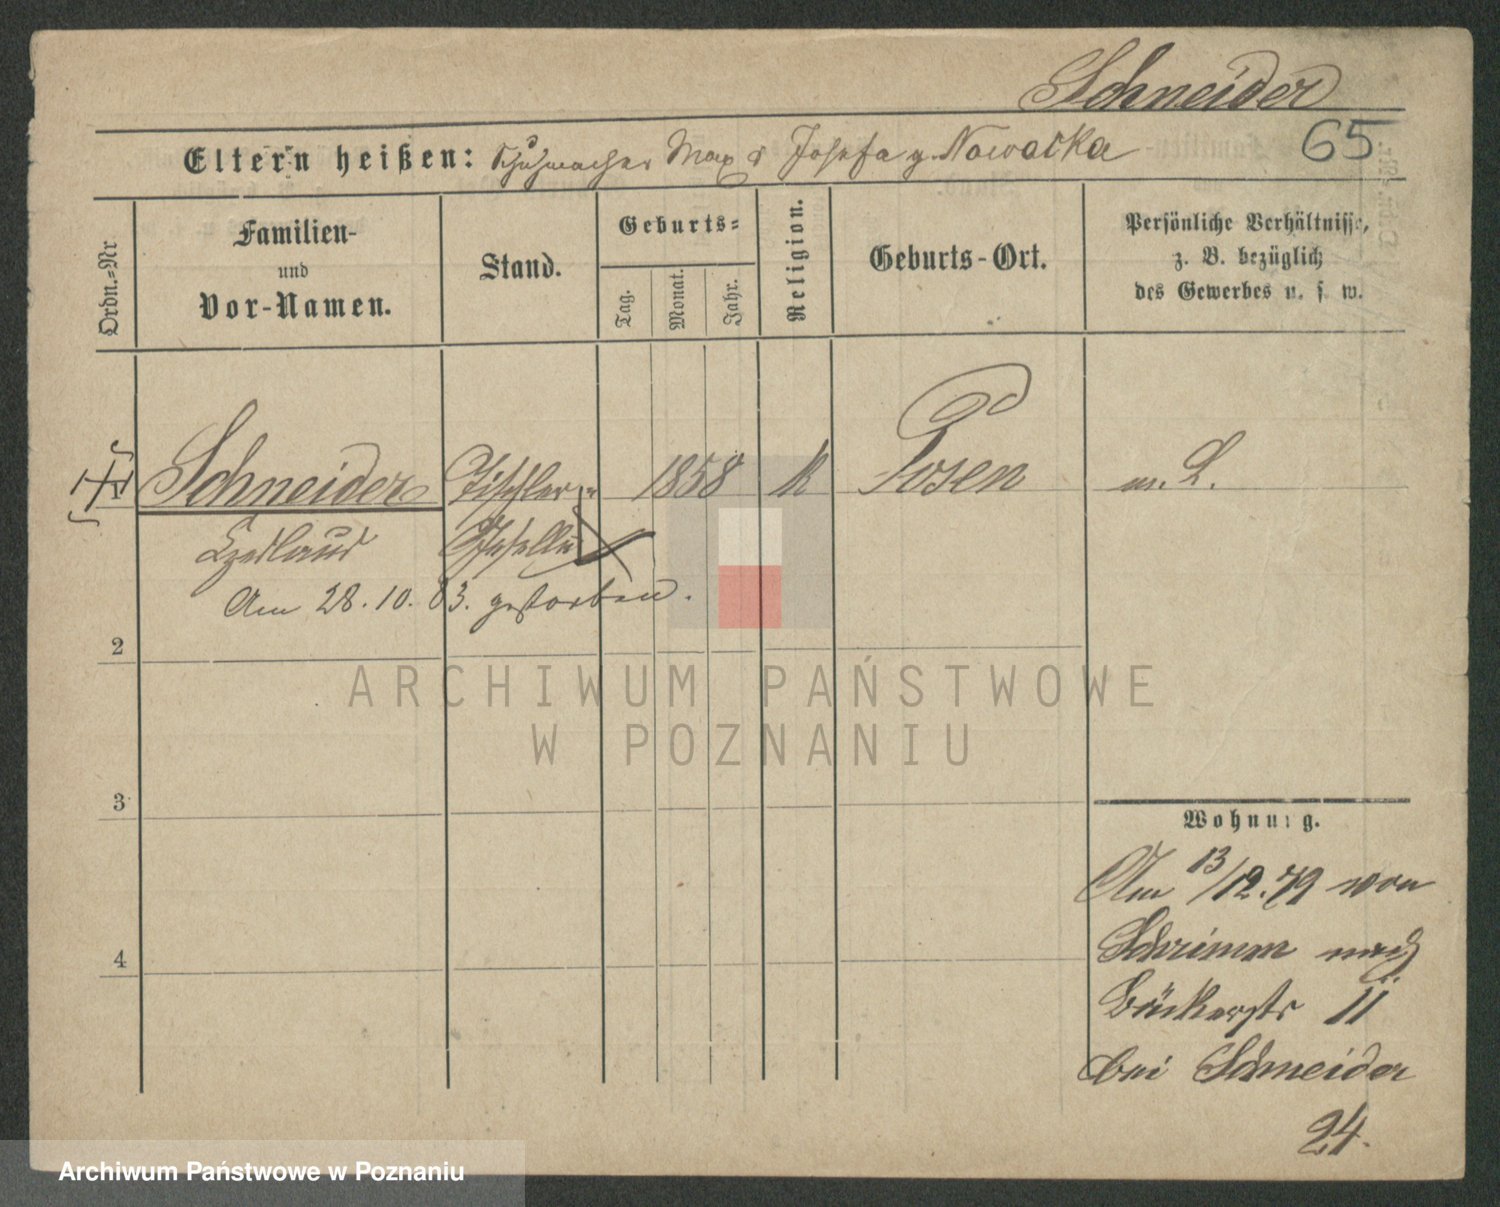 Schneider
65
Eltern heißen: Schuhmacher Max & Josefa g. Nowacka
Ordn.-Nr
Familien-
und
Vor-Namen.
Stand.
Geburts-
Tag.
Monat.
Jahr.
Religion.
Geburts-Ort.
Persönliche Verhältnisse,
z. B. bezüglich
des Gewerbes u. s. w.
Schneider Tischler- 1858 k Posen m. L.
Geselle
Am 28.10.83. gestorben.
2
ARCHIWUM PAŃSTWOWE
W POZNANIU
3
Wohnung.
Am 13/12.79 von
Schrimm nach
4
Bäckerstr 11
bei Schneider
24.
Archiwum Państwowe w Poznaniu